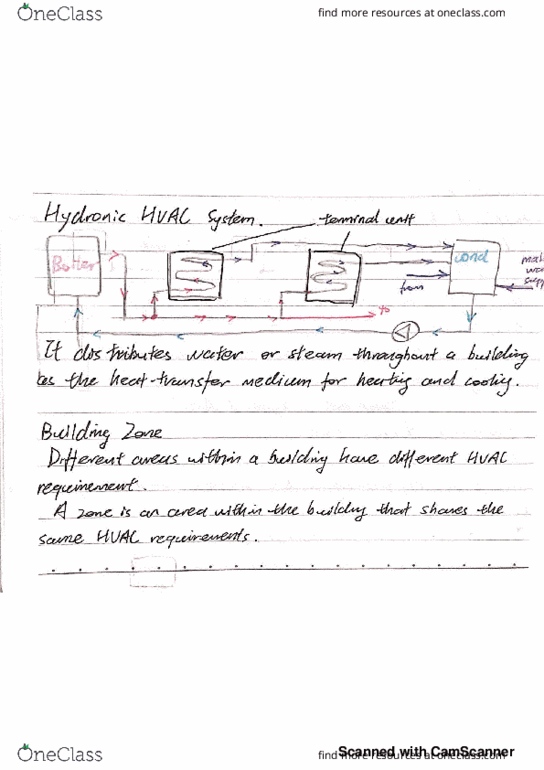 OneClass
find more resources at oneclass.com
Hydronic HVAC System. terminal unit
Boiler
cond
from
to
It distributes water or steam throughout a building
as the heat-transfer medium for heating and cooling.
Building Zone
Different areas within a building have different HVAC
requirement.
A zone is an area within the building that shares the
same HVAC requirements.
OneClass
find more resources at oneclass.com
Scanned with CamScanner